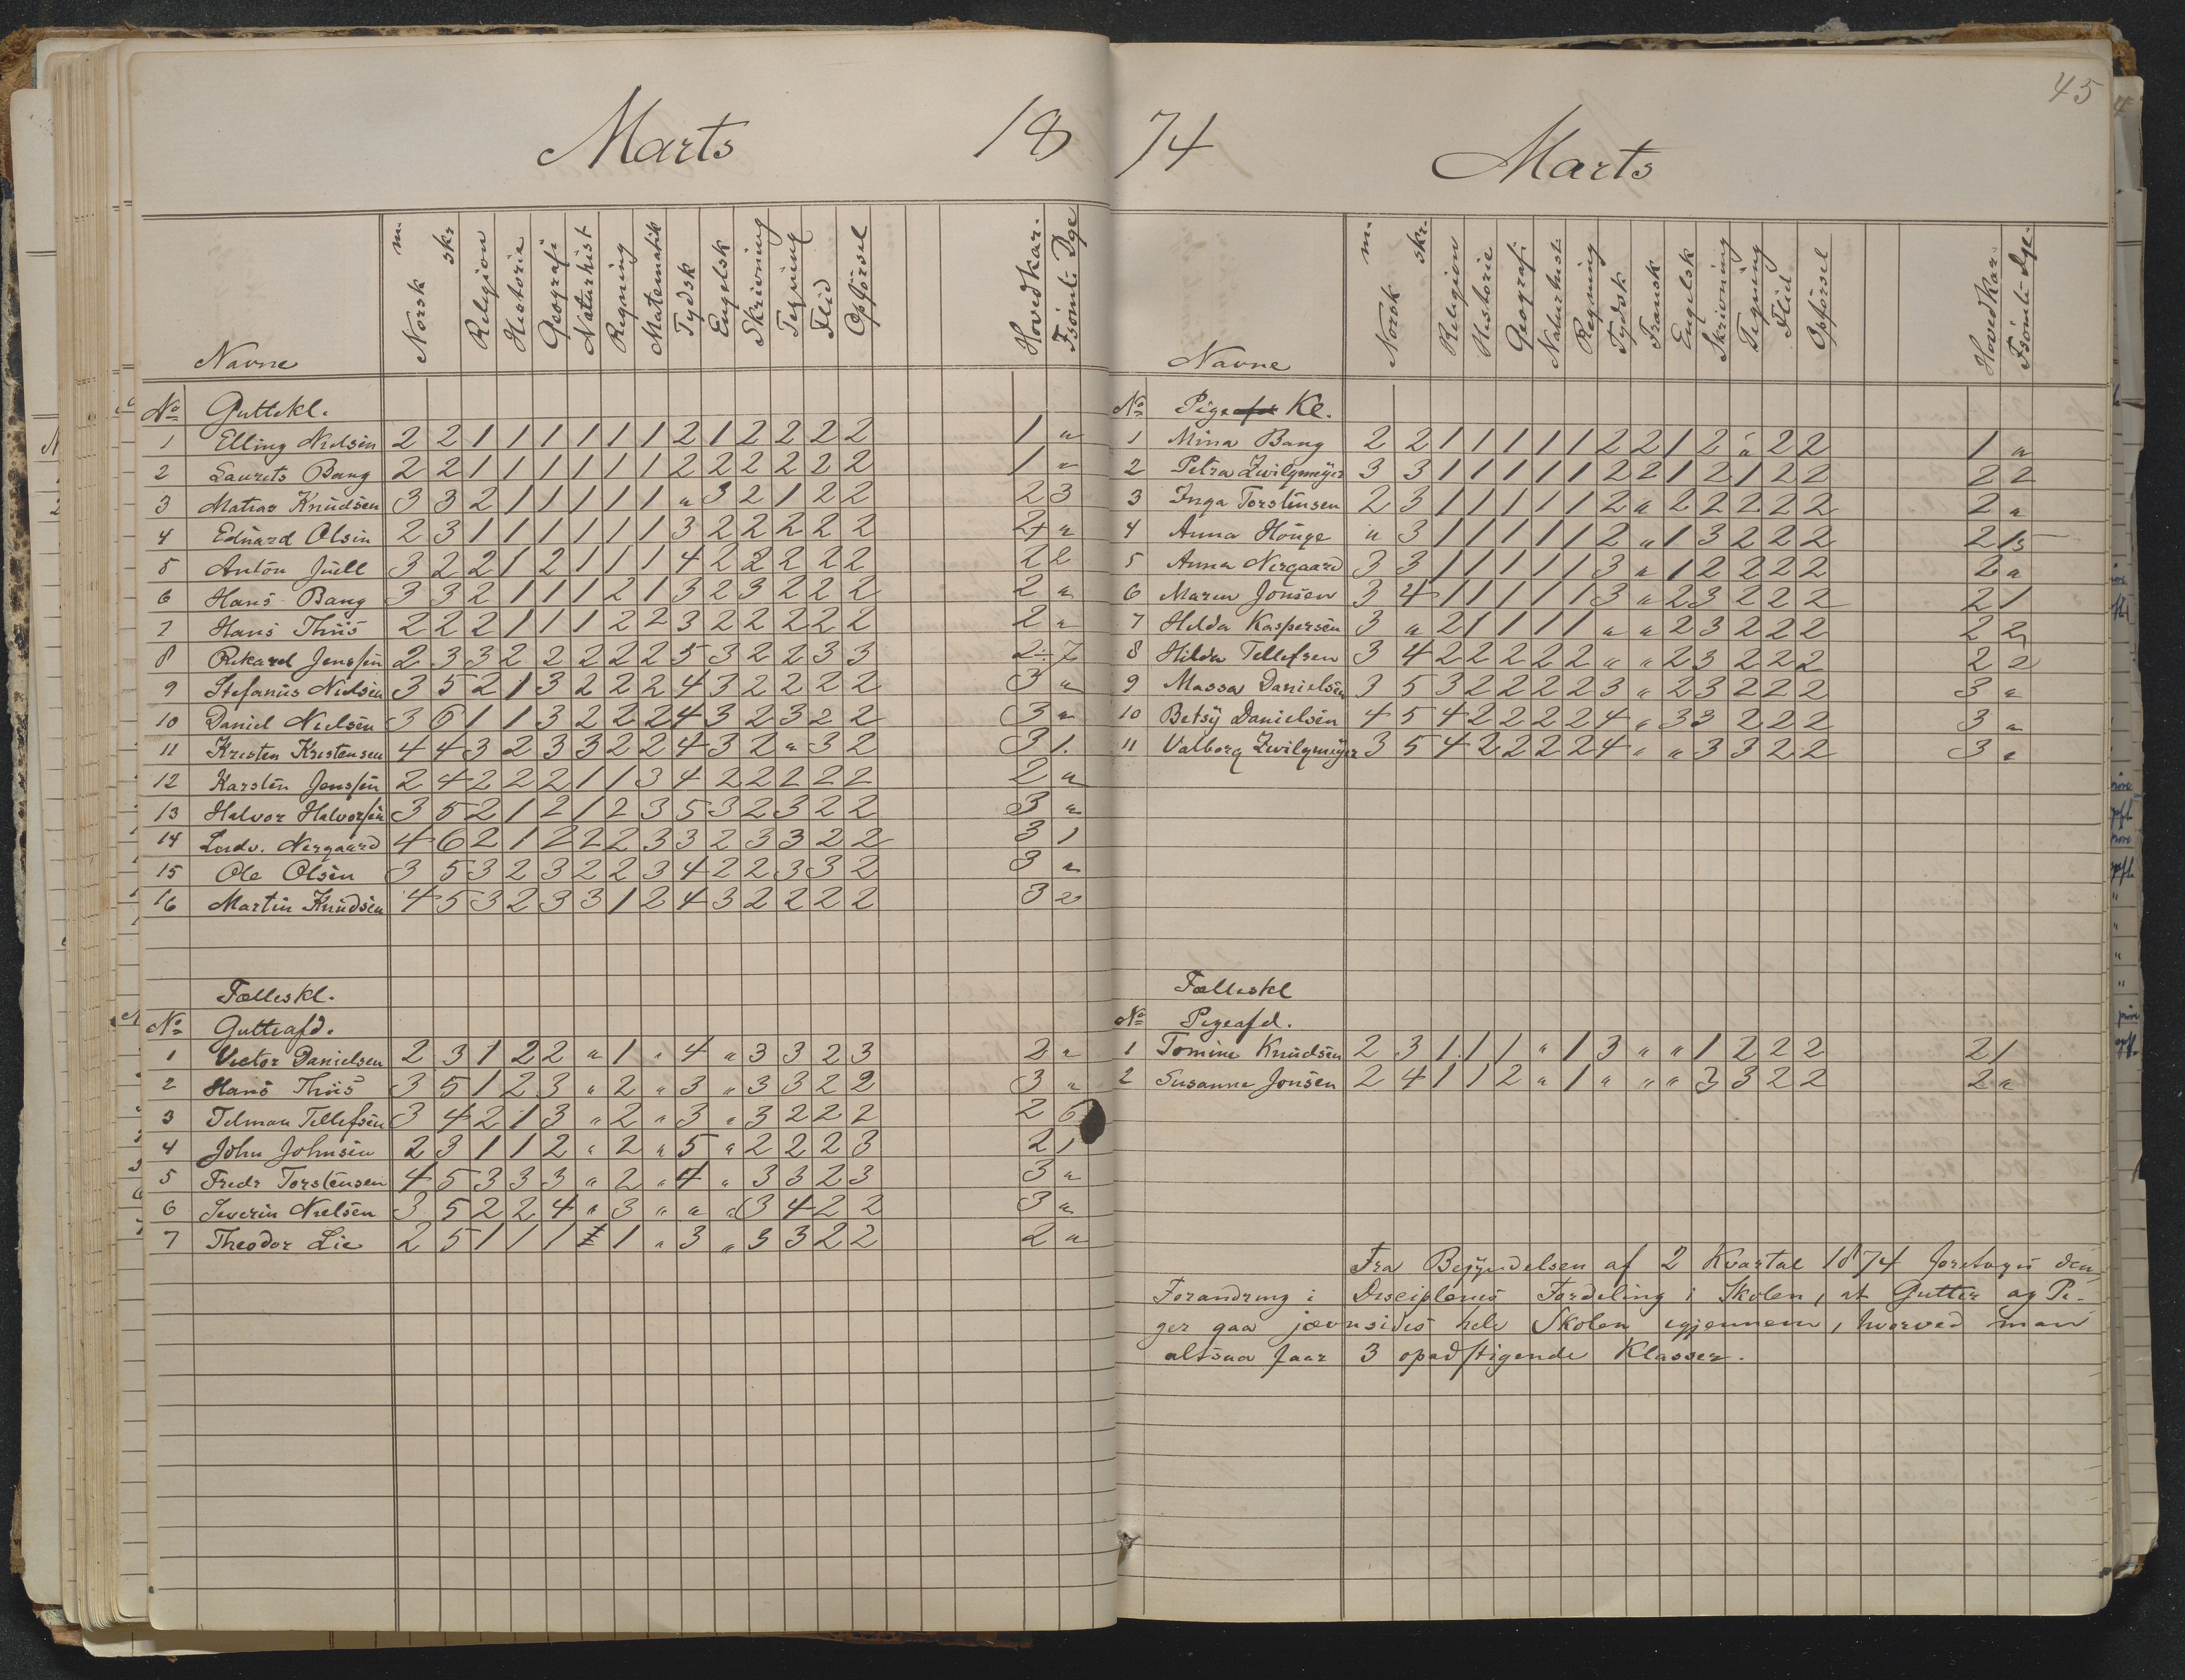 Marts 18
Navne Norsk m. skr. Religion Historie Geografi Naturhist Regning Matematik Tydsk Engelsk Skrivning Tegning Flid Opförsel Hovedkar. Fsömt. Dge
No Guttekl.
1 Elling Nielsen 2 2 1 1 1 1 1 1 2 1 2 2 2 2 1 "
2 Laurits Bang 2 2 1 1 1 1 1 1 2 2 2 2 2 2 1 "
3 Matias Knudsen 3 3 2 1 1 1 1 1 " 3 2 1 2 2 2 3
4 Eduard Olsen 2 3 1 1 1 1 1 1 3 2 2 2 2 2 2+ "
5 Anton Juell 3 2 2 1 2 1 1 1 4 2 2 2 2 2 2 2
6 Hans Bang 3 3 2 1 1 1 2 1 3 2 3 2 2 2 2 "
7 Hans Thiis 2 2 2 1 1 1 2 2 3 2 2 2 2 2 2 "
8 Rikard Jenssen 2 3 3 2 2 2 2 2 5 3 2 2 3 3 2÷ 7
9 Stefanus Nielsen 3 5 2 1 3 2 2 2 4 3 2 2 2 2 3 "
10 Daniel Nielsen 3 6 1 1 3 2 2 2 4 3 2 3 2 2 3 "
11 Kristen Kristensen 4 4 3 2 3 3 2 2 4 3 2 " 3 2 3 1.
12 Karsten Jenssen 2 4 2 2 2 1 1 3 4 2 2 2 2 2 2 "
13 Halvor Halvorsen 3 5 2 1 2 1 2 3 5 3 2 3 2 2 3 "
14 Ludv. Nergaard 4 6 2 1 2 2 2 3 3 2 3 3 2 2 3 1
15 Ole Olsen 3 5 3 2 3 2 2 3 4 2 2 3 3 2 3 "
16 Martin Knudsen 4 5 3 2 3 3 1 2 4 3 2 2 2 2 3 2
Fælleskl.
No Gutteafd.
1 Victor Danielsen 2 3 1 2 2 " 1 " 4 " 3 3 2 3 2 "
2 Hans Thiis 3 5 1 2 3 " 2 " 3 " 3 3 2 2 3 "
3 Telman Tellefsen 3 4 2 1 3 " 2 " 3 " 3 2 2 2 2 6
4 John Johnsen 2 3 1 1 2 " 2 " 5 " 2 2 2 3 2 1
5 Fredr Torstensen 4 5 3 3 3 " 2 " 4 " 3 3 2 3 3 "
6 Severin Nielsen 3 5 2 2 4 " 3 " " " 3 4 2 2 3 "
7 Theodor Lie 2 5 1 1 1 1 " 3 " 3 3 2 2 2 "
74 Marts 45
Navne Norsk m. skr. Religion Historie Geografi Naturhist. Regning Tydsk Fransk Engelsk Skrivning Tegning Flid Opförsel Hovedkar. Fsömt. Dge.
No Pigeafd Kl.
1 Mina Bang 2 2 1 1 1 1 1 2 2 1 2 " 2 2 1 "
2 Petra Zwilgmeyer 3 3 1 1 1 1 1 2 2 1 2 1 2 2 2 2
3 Inga Torstensen 2 3 1 1 1 1 1 2 " 2 2 2 2 2 2 "
4 Anna Houge " 3 1 1 1 1 1 2 " 1 3 2 2 2 2 15
5 Anna Nergaard 3 3 1 1 1 1 1 3 " 1 2 2 2 2 2 "
6 Maren Jonsen 3 4 1 1 1 1 1 3 " 2 3 2 2 2 2 1
7 Hilda Kaspersen 3 " 2 1 1 1 1 " " 2 3 2 2 2 2 2
8 Hilda Tellefsen 3 4 2 2 2 2 2 " " 2 3 2 2 2 2 2
9 Massa Danielsen 3 5 3 2 2 2 2 3 " 2 3 2 2 2 3 "
10 Betsy Danielsen 4 5 4 2 2 2 2 4 " 3 3 2 2 2 3 "
11 Valborg Zwilgmeyer 3 5 4 2 2 2 2 4 " " 3 3 2 2 3 "
Fælleskl
No Pigeafd.
1 Tomine Knudsen 2 3 1 1 1 " 1 3 " " 1 2 2 2 2 1
2 Susanne Jonsen 2 4 1 1 2 " 1 " " " 3 3 2 2 2 "
Fra Begyndelsen af 2 Kvartal 1874 foretages den
Forandring i Disciplenes Fordeling i Skolen, at Gutter og Pi-
ger gaa jævnsides hele Skolen igjennem, hvorved man
altsaa faar 3 opadstigende Klasser.